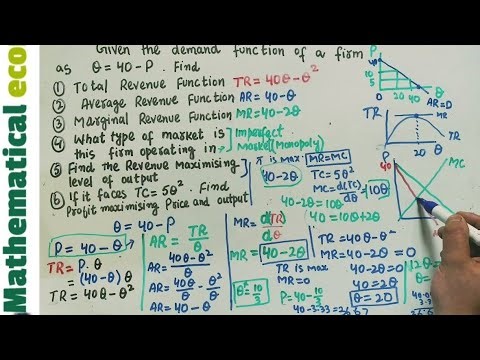 Mathematical eco
Given the demand function of a firm
as Q = 40-P. Find
① Total Revenue Function TR = 40Q-Q²
② Average Revenue Function AR = 40-Q
③ Marginal Revenue Function MR = 40-2Q
④ What type of market is
this firm operating in
Imperfect
Market (Monopoly)
⑤ Find the Revenue Maximising
level of output
⑥ If it faces TC = 5Q². Find
Profit maximising Price and output
π is max MR=MC
40-2Q =
TC = 5Q²
MC = d(TC)
dQ
= 10Q
40-2Q = 10Q
40 = 10Q+2Q
Q = 40-P
P = 40-Q
TR = P.Q
= (40-Q)Q
TR = 40Q-Q²
AR = TR
Q
AR = 40Q-Q²
Q
AR = 40Q - Q²
Q Q
AR = 40-Q
MR = d(TR)
dQ
MR = 40-2Q
Q* = 10
3
P = 40-10
3
TR = 40Q-Q²
TR is max
MR = 40-2Q = 0
40-2Q = 0
40 = 2Q
Q = 20
12Q =
Q =
P
40
10
5
20 40 Q
AR=D
MR
TR
TR
20 Q
P
40
MC